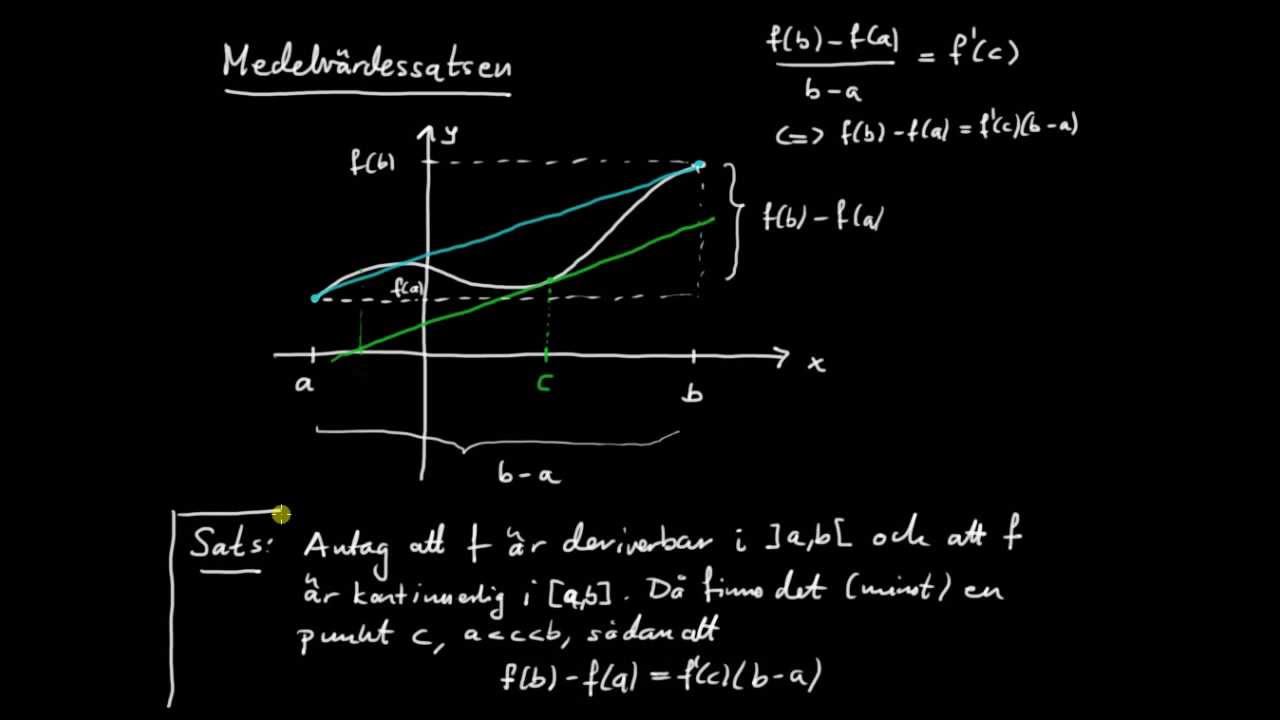 Medelvärdessatsen
f(b) - f(a)
b - a
= f'(c)
<=> f(b) - f(a) = f'(c)(b - a)
y
f(b)
f(b) - f(a)
f(a)
a
c
b
x
b - a
Sats: Antag att f är deriverbar i ]a,b[ och att f
är kontinuerlig i [a,b]. Då finns det (minst) en
punkt c, a<c<b, sådan att
f(b) - f(a) = f'(c)(b - a)